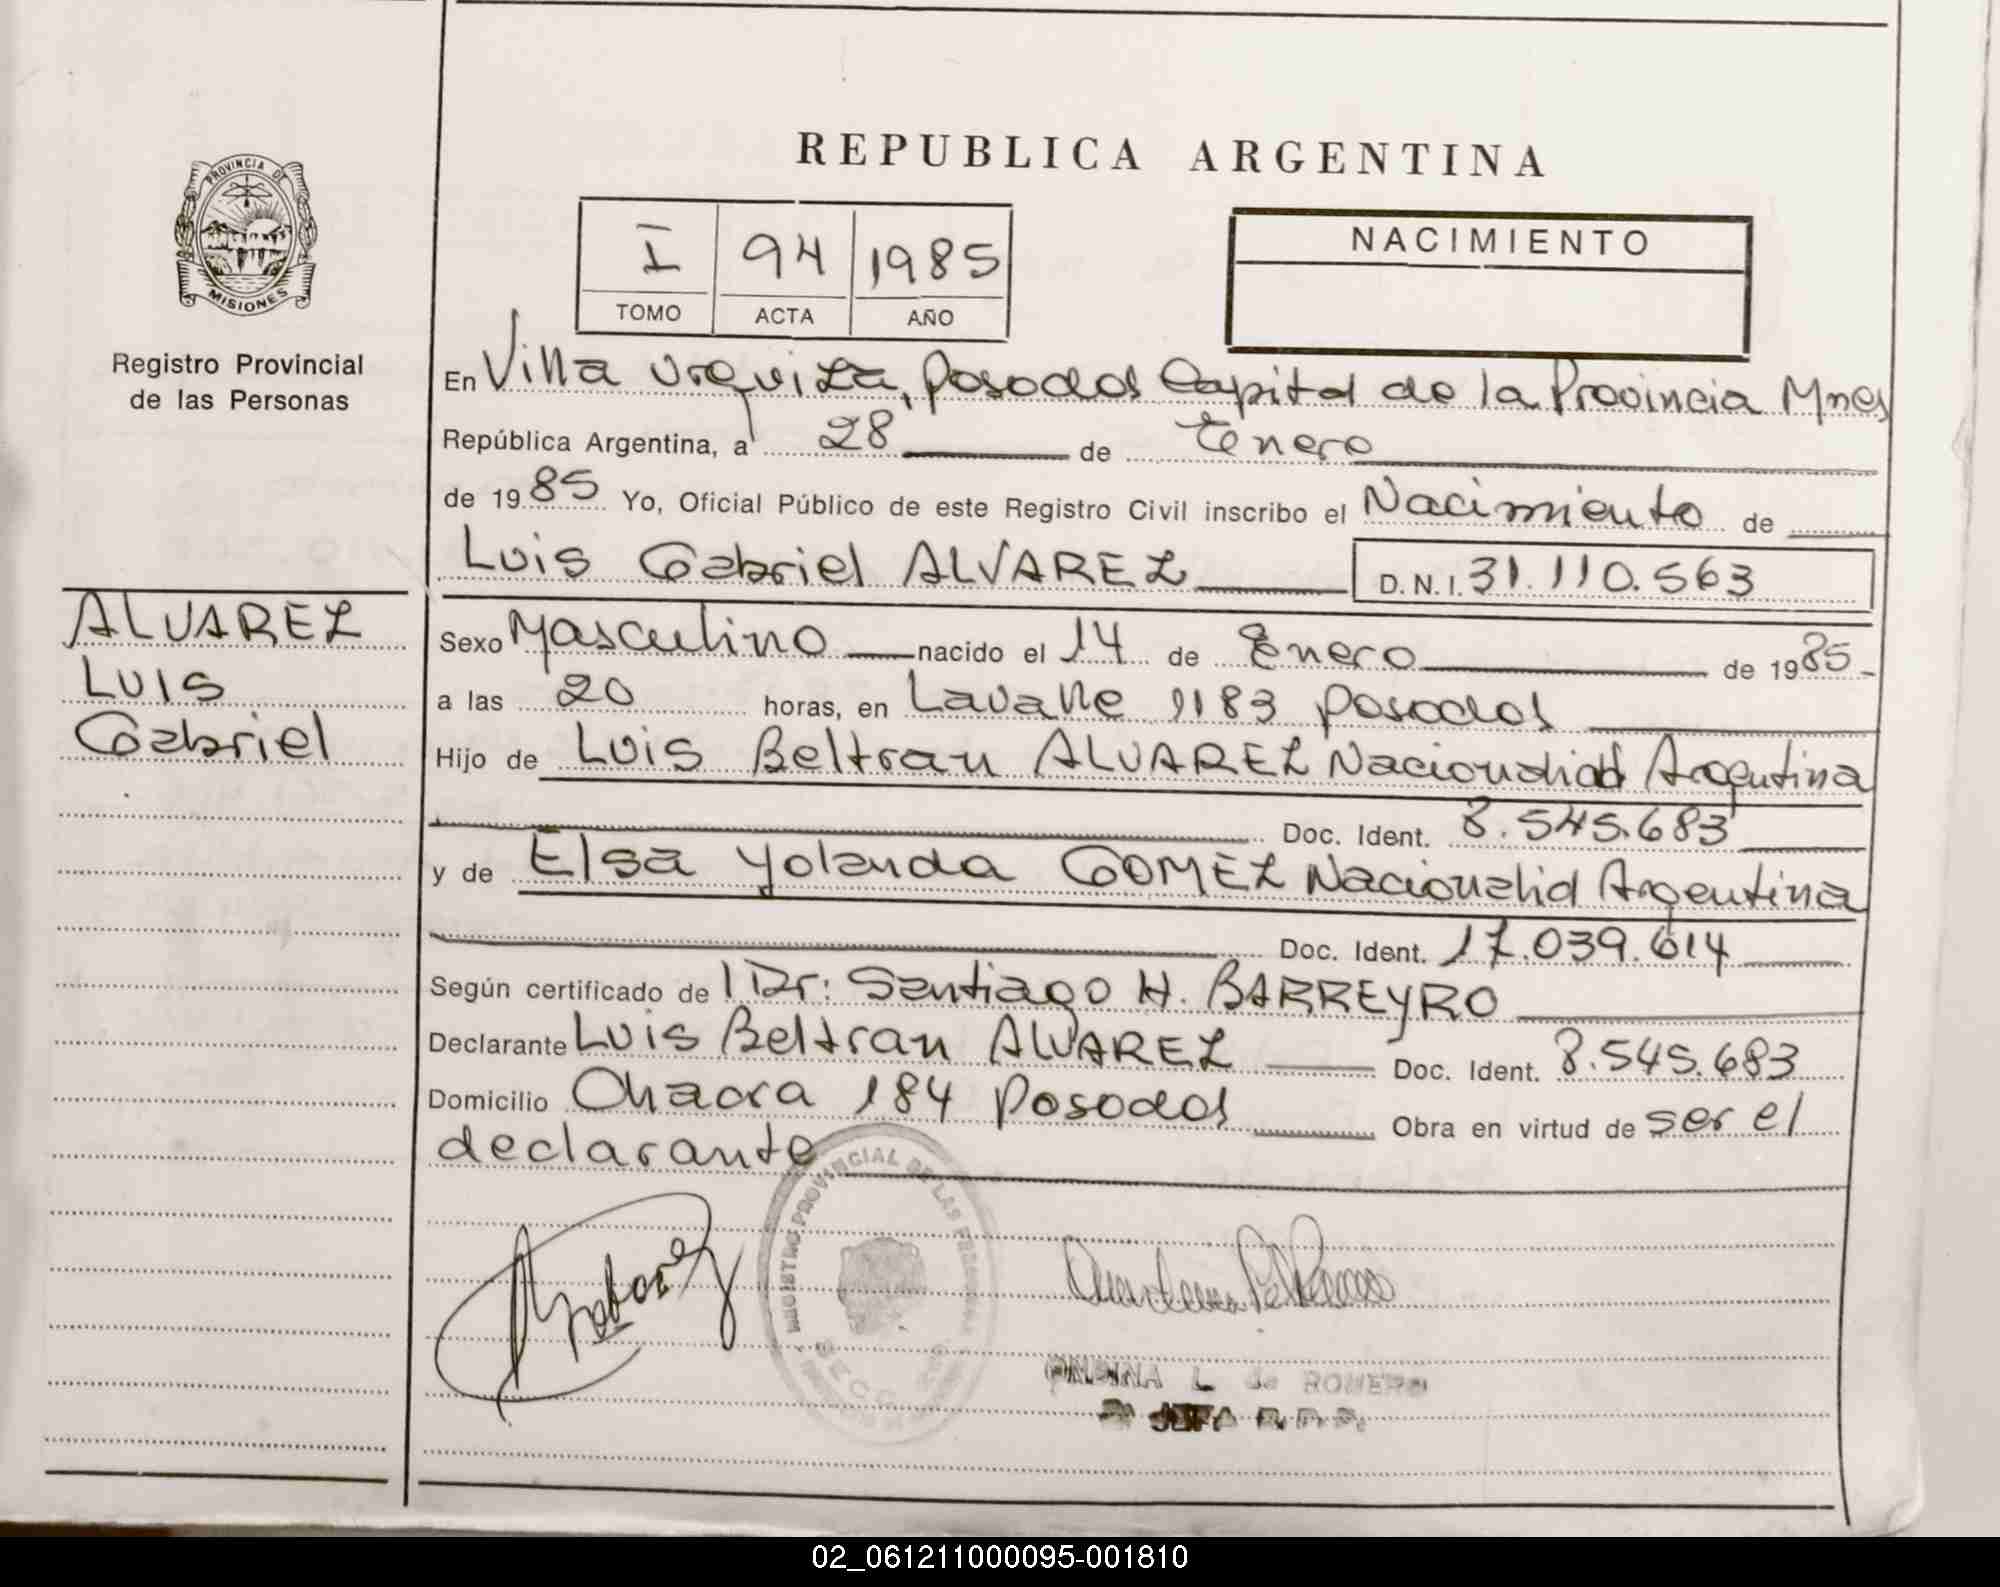 REPUBLICA ARGENTINA
PROVINCIA DE
MISIONES
Registro Provincial
de las Personas
I 94 1985
TOMO ACTA AÑO
NACIMIENTO
En Villa Urquiza, Posadas Capital de la Provincia Mnes
República Argentina, a 28 de Enero
de 1985 Yo, Oficial Público de este Registro Civil inscribo el Nacimiento de
Luis Gabriel ALVAREZ D.N.I. 31.110.563
ALVAREZ
Luis
Gabriel
Sexo Masculino nacido el 14 de Enero de 1985
a las 20 horas, en Lavalle 1183 Posadas
Hijo de Luis Beltran ALVAREZ Nacionalidad Argentina
Doc. Ident. 8.545.683
y de Elsa Yolanda GOMEZ Nacionalid Argentina
Doc. Ident. 17.039.614
Según certificado de Dr: Santiago H. BARREYRO
Declarante Luis Beltran ALVAREZ Doc. Ident. 8.545.683
Domicilio Chacra 184 Posadas Obra en virtud de ser el
declarante
REGISTRO PROVINCIAL DE LAS PERSONAS
L. de ROMERO
JEFA R.P.P.
02_061211000095-001810